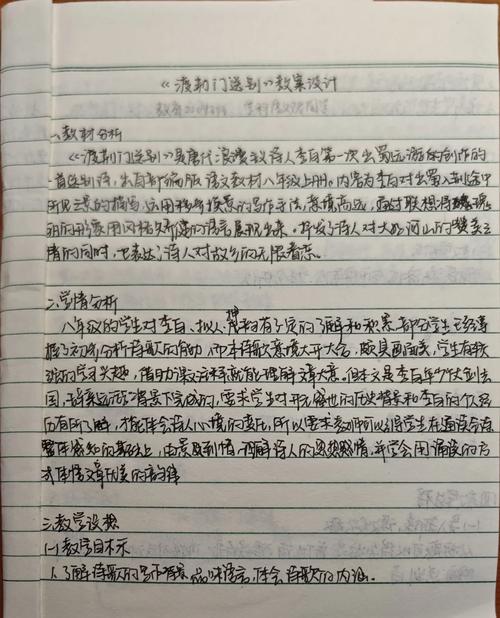 《渡荆门送别》教案设计
一、教材分析
《渡荆门送别》是唐代浪漫主义诗人李白第一次出蜀远游时创作的
一首送别诗，出自部编版语文教材八年级上册。内容为李白对出蜀入荆途中
所见之景的描写，运用移步换景的写作手法，意境高远，通过联想
的形象用风格
情的同时，也表达了诗人对故乡的无限眷恋。
二、学情分析
八年级的学生对李白、拟人有了一定的了解和积累，部分学生已经掌
握了初步分析诗歌的能力，而本诗歌意境大开大合，颇具画面美，学生有较
强的学习兴趣，借助就能理解文章大意。但本文是李白年少仗剑去
国，辞亲远游背景下完成的，要求学生对开元盛世的历史背景和李白的人生经
历有所了解，才能体会诗人心境的变化，所以要求老师可以引导学生在通读全诗
整体感知的基础上，由景及到情，理解诗人的思想感情，并学会用诵读的方
式体悟文章优美的韵律
三、教学设想
(一)教学目标
1.了解诗歌的写作背景，品味语言，体会诗歌的内涵。